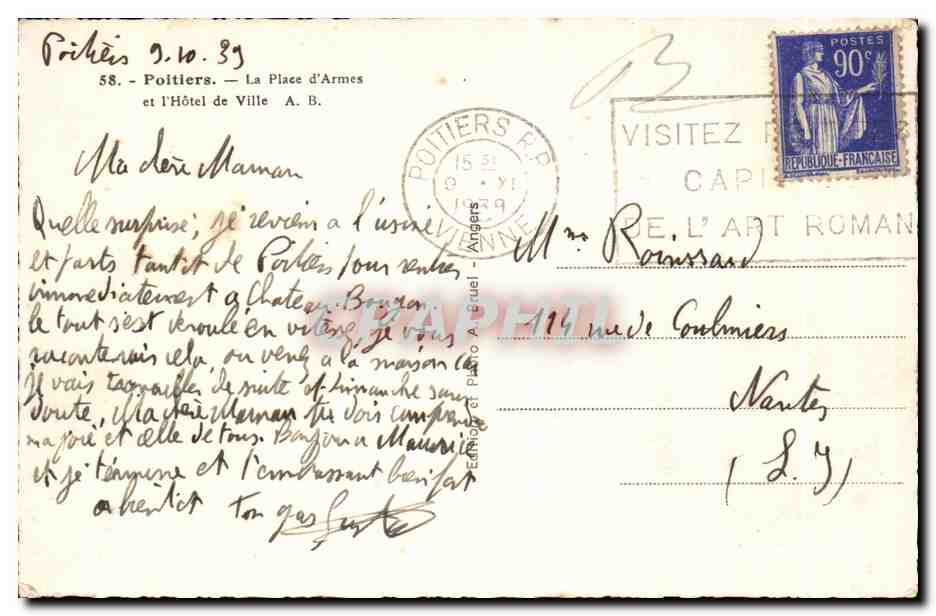 Poitiers 9.10.39
58. - Poitiers. — La Place d'Armes
et l'Hôtel de Ville A. B.
Ma chère Maman
Quelle surprise, je reviens a l'usine
et parts tantôt de Poitiers pour rentrer
immediatement a Chateau-Bougon
le tout s'est deroulé en vitesse, je vous
raconterais cela, ou venez a la maison car
je vais travailler de suite et Dimanche sans
doute, Ma chère Maman tu dois comprendre
ma joie et celle de tous. Bonjour a Maurice
et je termine et t'embrassant bien fort
a bientôt ton gas
POITIERS R.P.
15 31
9 - XI
1939
VIENNE
B
VISITEZ
CAPI
DE L'ART ROMAN
POSTES
90c
REPUBLIQUE-FRANCAISE
Editions et Photo A. Bruel - Angers
GRAPHTI
Mme Roinssard
114 rue de Coulmiers
Nantes
(L. I)